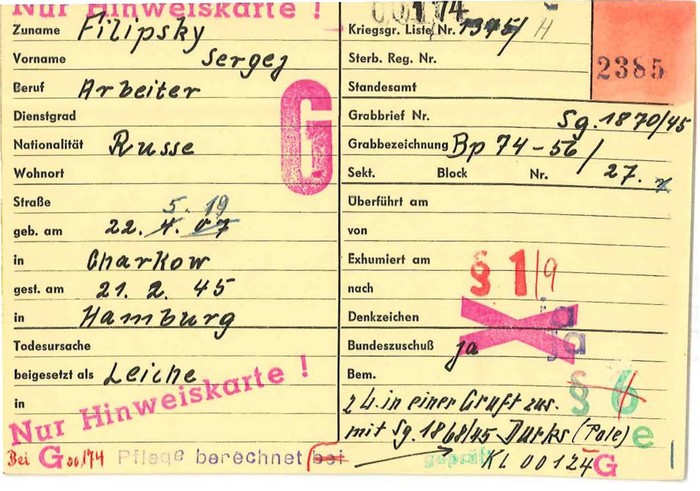 Nur Hinweiskarte !
Zuname Filipsky
Vorname Sergej
Beruf Arbeiter
Dienstgrad
Nationalität Russe
Wohnort
Straße
5. 19
geb. am 22. 4. 07
in Charkow
gest. am 21. 2. 45
in Hamburg
Todesursache
beigesetzt als Leiche
in
Nur Hinweiskarte !
Bei G 00174 Pflege berechnet bei
G
00174
Kriegsgr. Liste Nr. 1375/ H
Sterb. Reg. Nr.
2385
Standesamt
Grabbrief Nr. Sg. 1870/45
Grabbezeichnung Bp 74-56/
Sekt. Block Nr. 27.
Überführt am
von
Exhumiert am § 1/9
nach
Denkzeichen ja
Bundeszuschuß ja ja
Bem. § 6
2 L. in einer Gruft zus.
mit Sg. 1868/45 Durks (Pole) e
geprüft KL 00124 G